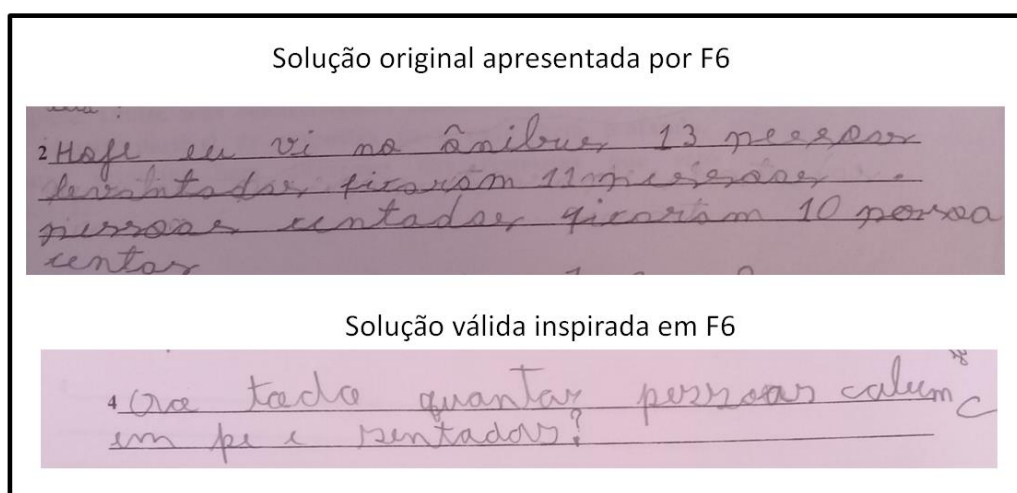 Solução original apresentada por F6
2 Hoje eu vi no ônibus 13 pessoas
levantadas ficaram 11
pessoas centadas ficaram 10 pessoa
centas
Solução válida inspirada em F6
4 Ao todo quantas pessoas
em pe e sentados?